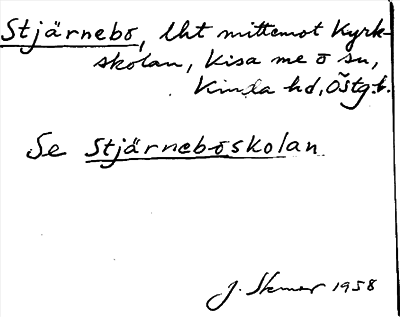 Stjärnebo, lht mittemot Kyrk-
skolan, Kisa me o sn,
Kinda hd, Östg.
Se Stjärneboskolan
J. 1958